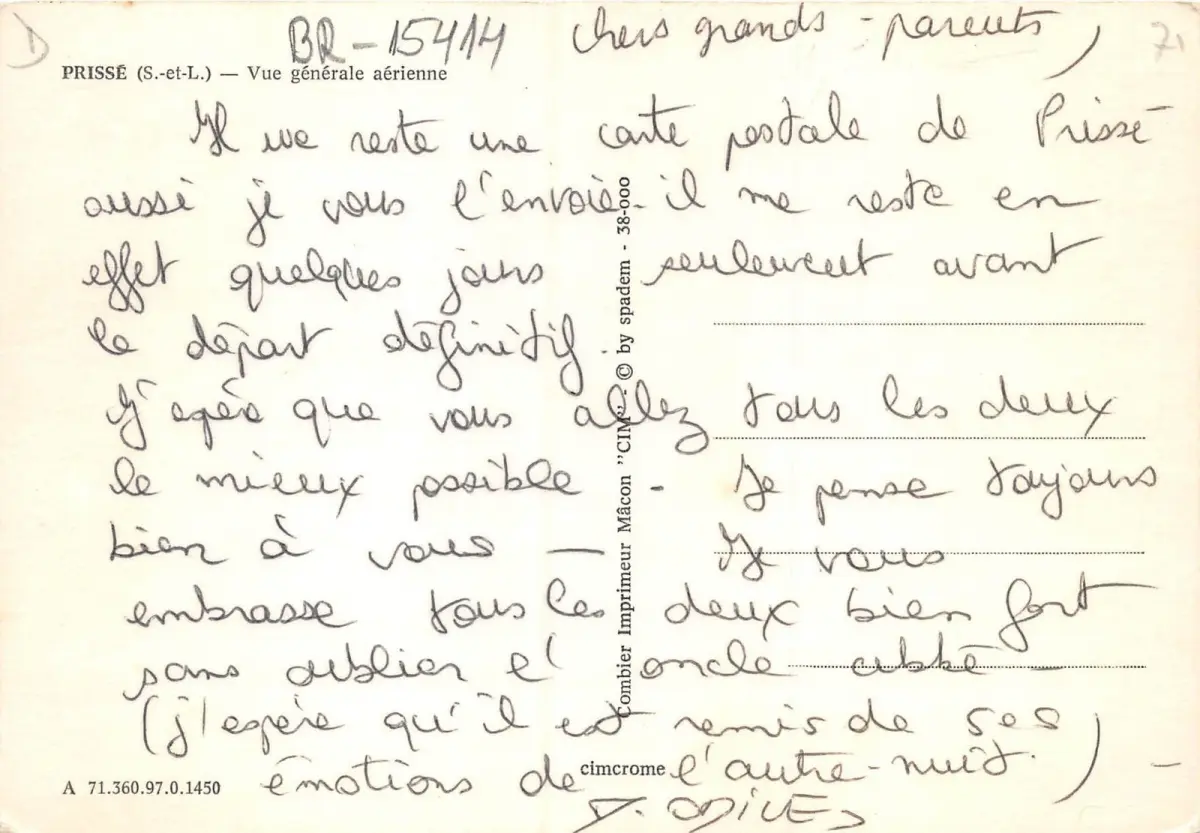 D
BR-15414
chers grands-parents,
71
PRISSÉ (S.-et-L.) — Vue générale aérienne
Il me reste une carte postale de Prissé
aussi je vous l'envoie. il me reste en
effet quelques jours seulement avant
le départ définitif.
J'espère que vous allez tous les deux
le mieux possible - Je pense toujours
bien à vous — Je vous
embrasse tous les deux bien fort
sans oublier l'oncle abbé —
(j'espère qu'il est remis de ses
émotions de l'autre-nuit.) —
Combier Imprimeur Mâcon "CIM" - © by spadem - 38-000
cimcrome
A 71.360.97.0.1450